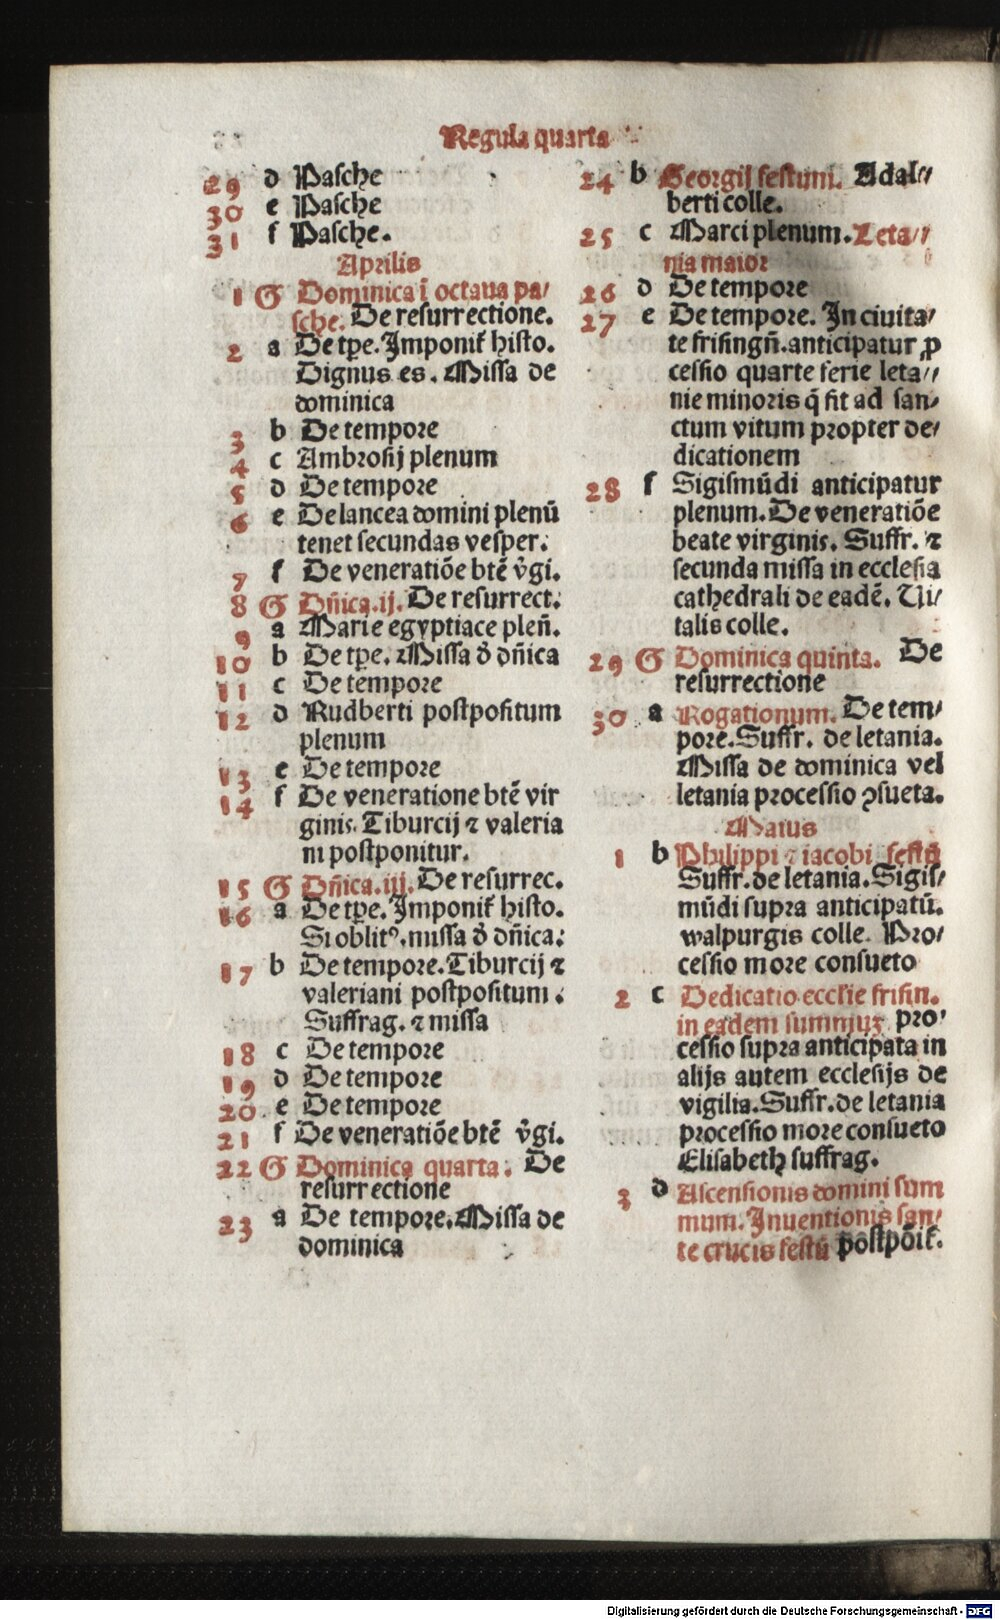 Regula quarta
29 d Pasche
30 e Pasche
31 f Pasche.
Aprilis
1 G Dominica ī octaua pa⸗
sche. De resurrectione.
2 a De tꝑe. Imponit᷑ histo.
Dignus es. Missa de
dominica
3 b De tempore
4 c Ambrosij plenum
5 d De tempore
6 e De lancea domini plenū
tenet secundas vesper.
7 f De veneratiōe btē v̄gi.
8 G Dñica.ij. De resurrect.
9 a Marie egyptiace pleñ.
10 b De tꝑe. Missa đ dñica
11 c De tempore
12 d Rudberti postpositum
plenum
13 e De tempore
14 f De veneratione btē vir
ginis. Tiburcij ⁊ valeria
ni postponitur.
15 G Dñica.iij. De resurrec.
16 a De tꝑe. Imponit᷑ histo.
Si oblitꝰ. missa đ dñica.
17 b De tempore. Tiburcij ⁊
valeriani postpositum.
Suffrag. ⁊ missa
18 c De tempore
19 d De tempore
20 e De tempore
21 f De veneratiōe btē v̄gi.
22 G Dominica quarta. De
resurrectione
23 a De tempore. Missa de
dominica
24 b Georgij festum. Adal⸗
berti colle.
25 c Marci plenum. Leta⸗
nia maior
26 d De tempore
27 e De tempore. In ciuita⸗
te frisingñ. anticipatur ꝓ
cessio quarte ferie leta⸗
nie minoris q̄ fit ad san⸗
ctum vitum propter de⸗
dicationem
28 f Sigismūdi anticipatur
plenum. De veneratiōe
beate virginis. Suffr. ⁊
secunda missa in ecclesia
cathedrali de eadē. Ui⸗
talis colle.
29 G Dominica quinta. De
resurrectione
30 a Rogationum. De tem⸗
pore. Suffr. de letania.
Missa de dominica vel
letania processio ↄsueta.
Maius
1 b Philippi ⁊ iacobi festū
Suffr. de letania. Sigis⸗
mūdi supra anticipatū.
walpurgis colle. Pro⸗
cessio more consueto
2 c Dedicatio ecclīe frisin.
in eadem summuꝫ pro⸗
cessio supra anticipata in
alijs autem ecclesijs de
vigilia. Suffr. de letania
processio more consueto
Elisabeth suffrag.
3 d Ascensionis domini sum
mum. Inuentionis san⸗
te crucis festū postpōit᷑.
Digitalisierung gefördert durch die Deutsche Forschungsgemeinschaft - DFG